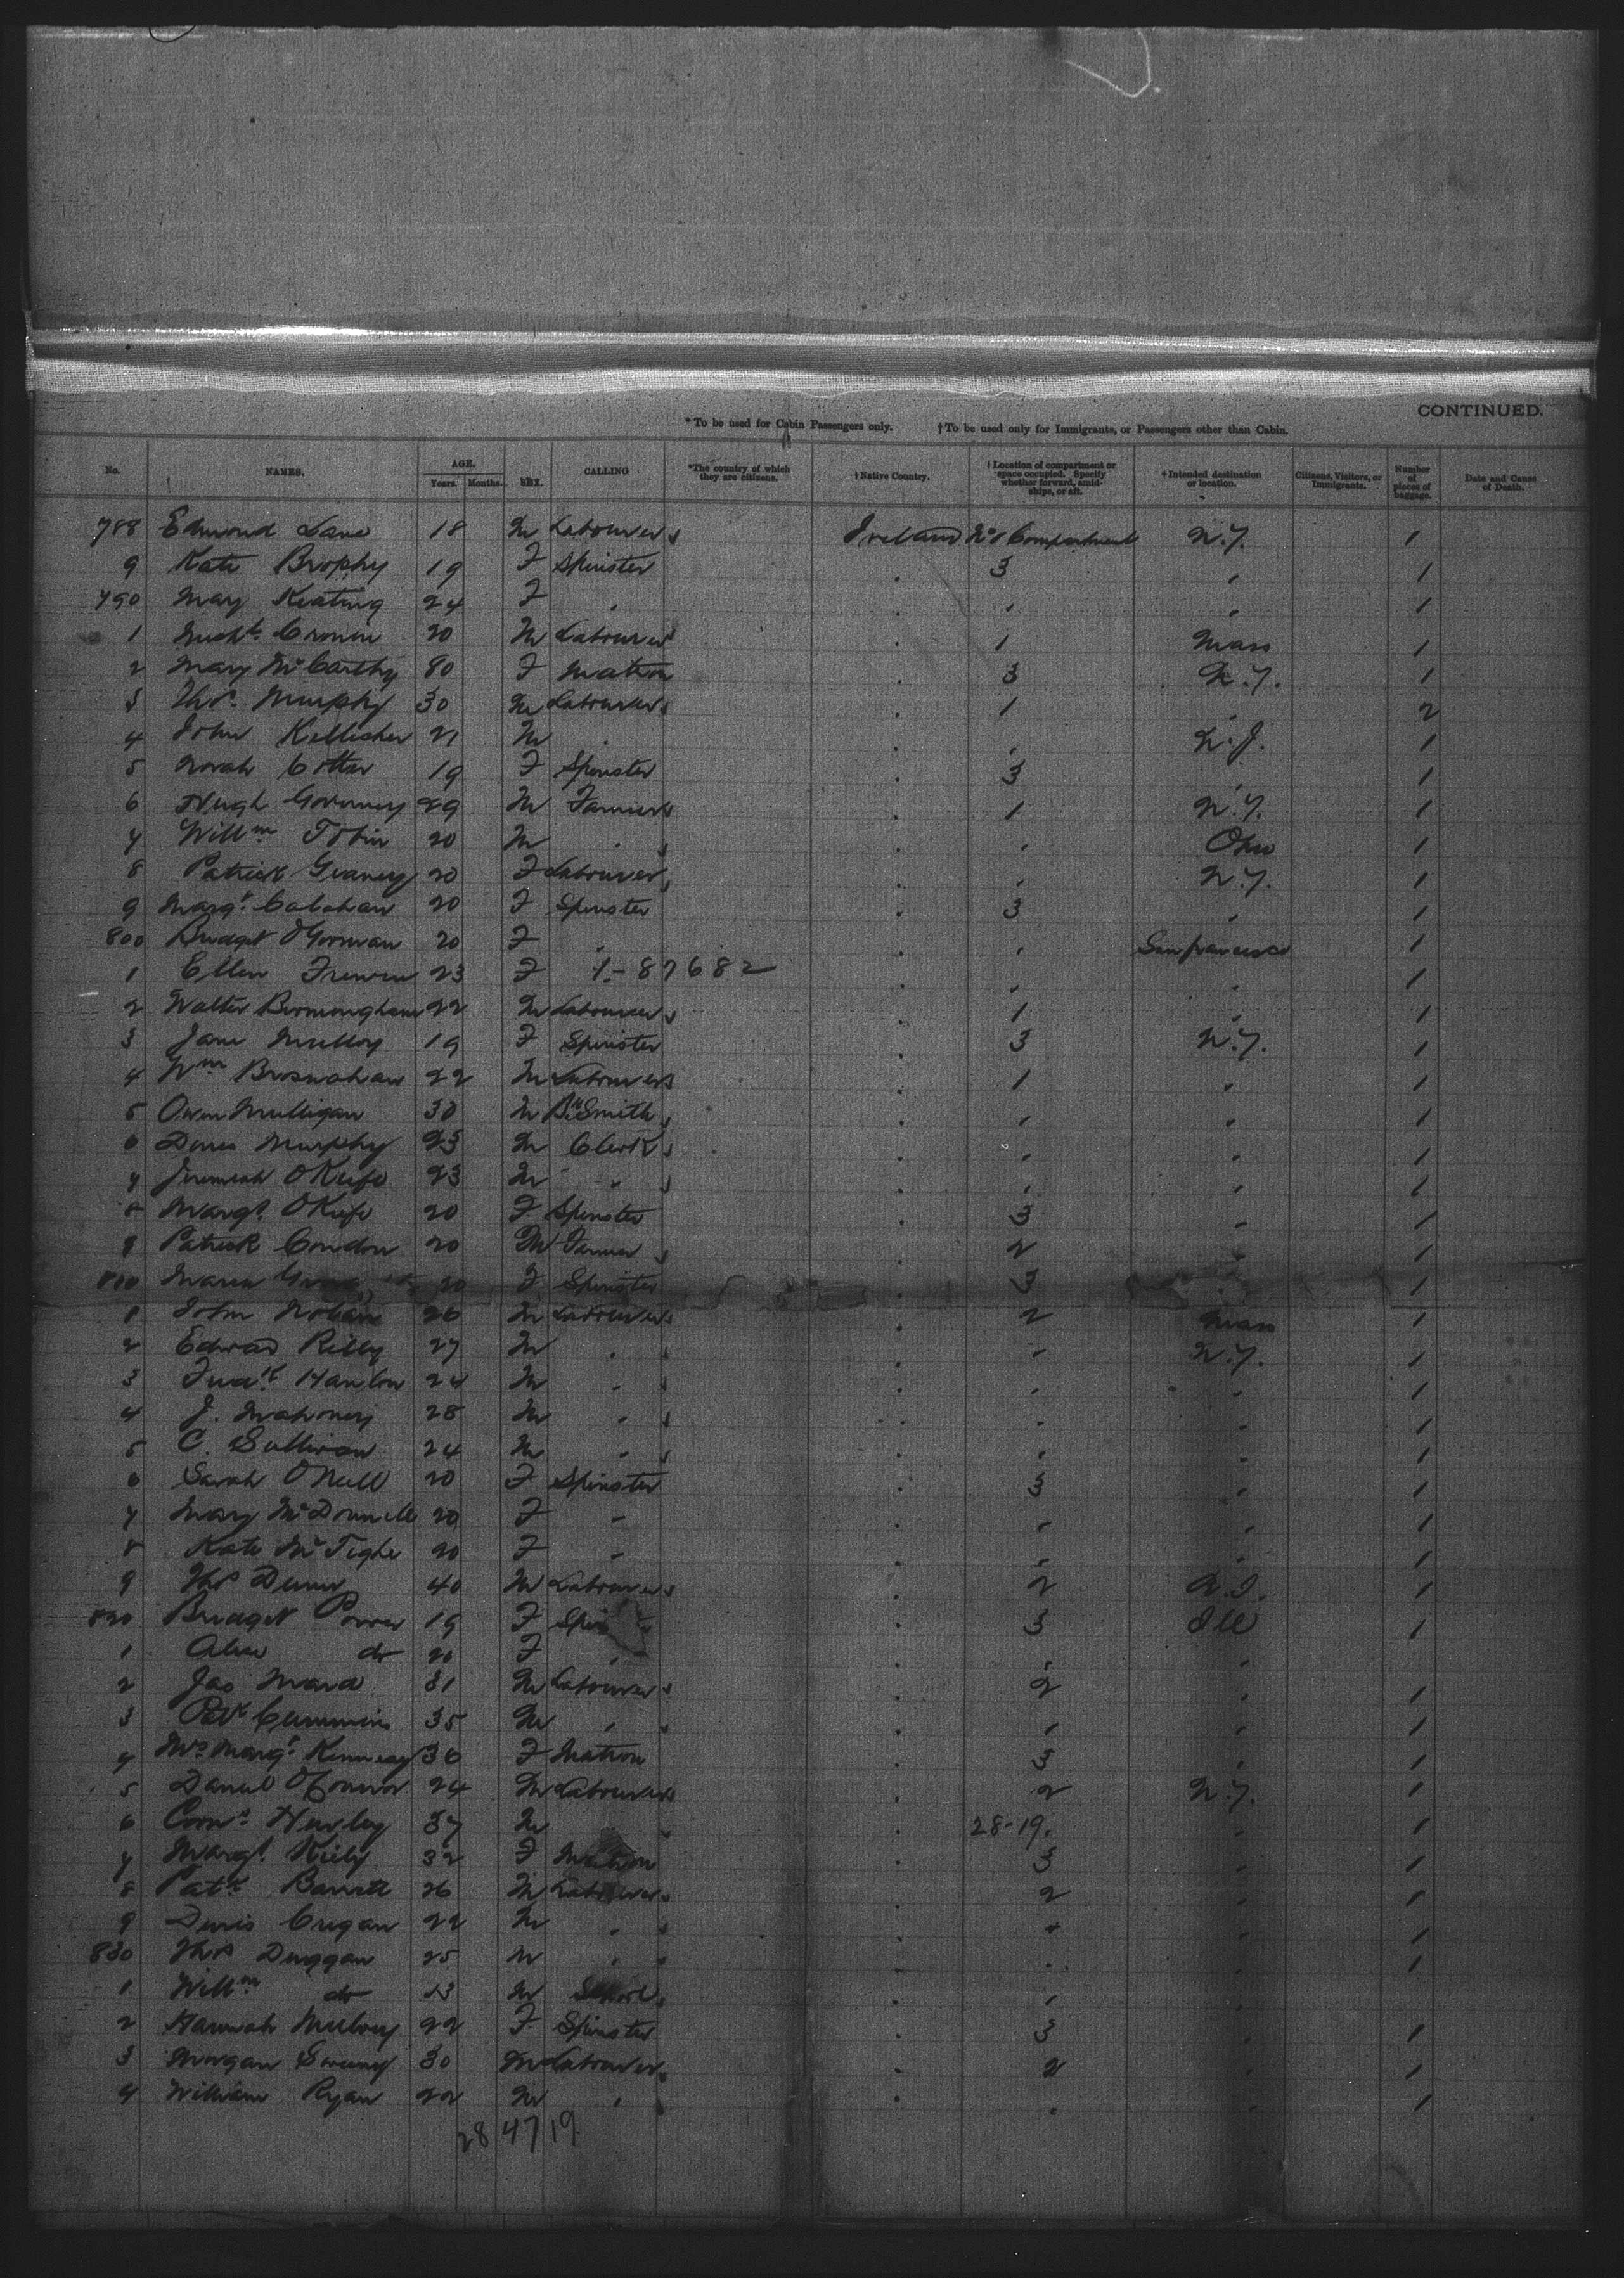 CONTINUED.
* To be used for Cabin Passengers only. † To be used only for Immigrants, or Passengers other than Cabin.
No. NAMES. AGE. Years. Months. SEX. CALLING *The country of which they are citizens. †Native Country. †Location of compartment or space occupied. Specify whether forward, amidships, or aft. †Intended destination or location. Citizens, Visitors, or Immigrants. Number of pieces of baggage. Date and Cause of Death.
788 Edmond Lane 18 M Labourer Ireland No 1 Compartment N.Y. 1
9 Kate Brophy 19 F Spinster . 3 . 1
790 May Keating 24 F . . . . 1
1 Cronin 20 M Labourer . 1 Mass 1
2 Mary McCarthy F Matron . 3 N.Y. 1
3 Thos. Murphy 30 M Labourer . 1 . 2
4 John Kellisher 21 M . . . N.J. 1
5 Norah Cotter 19 F Spinster . 3 . 1
6 Hugh 29 M Farmer . 1 N.Y. 1
7 Willm Tobin 20 M . . . Ohio 1
8 Patrick 20 F Labourer . . N.Y. 1
9 Margt. Calahan 20 F Spinster . 3 . 1
800 Bridget OGorman 20 F . . . San francisco 1
1 Ellen Frewen 23 F 1-87682 . . . 1
2 Walter Birmongham 22 M Labourer . 1 . 1
3 Jane Mulloy 19 F Spinster . 3 N.Y. 1
4 Wm Brosnahan 22 M Labourer . 1 . 1
5 Owen Mulligan 30 M Bk Smith . . . 1
6 Murphy 23 M Clerk . . . 1
7 Jeremiah OKeefe 23 M . . . . 1
8 Margt. OKeefe 20 F Spinster . 3 . 1
9 Patrick Condon 20 M Farmer . 2 . 1
Maria 20 F Spinster . 3 . 1
1 John Nolan 26 M Labourer . 2 Mass 1
2 Edward Rilly 27 M . . . N.Y. 1
3 Hanlon 24 M . . . . 1
4 J. Mahoney 28 M . . . . 1
5 C. Sullivan 24 M . . . . 1
6 Sarah ONeill 20 F Spinster . 3 . 1
7 Mary McDonnell 20 F . . . . 1
8 Kate McTighe 20 F . . . . 1
9 Thos 40 M Labourer . 2 1
820 Bridget Power 19 F . 3 Ill 1
1 Alice do 20 F . . . .
2 Jas Ward 31 M Labourer . 2 . 1
3 Patk Cummins 35 M . . . . 1
4 Mrs Margt. Kennedy F Matron . 3 . 1
5 Daniel OConnor 24 M Labourer . 2 N.Y. 1
6 Corns. Hurley 37 M . 28-19. . 1
7 Margt. Kiely 32 F Matron . 3 . 1
8 Patk Barrett 26 M Labourer . 2 . 1
9 Denis Cregan 22 M . . . . 1
830 Thos Duggan 25 M . . . . 1
1 Willm do 13 M School . . .
2 Hannah 22 F Spinster . 3 . 1
3 Morgan Sweeny 30 M Labourer . 2 . 1
4 William Ryan 22 M . . . . 1
28 47 19